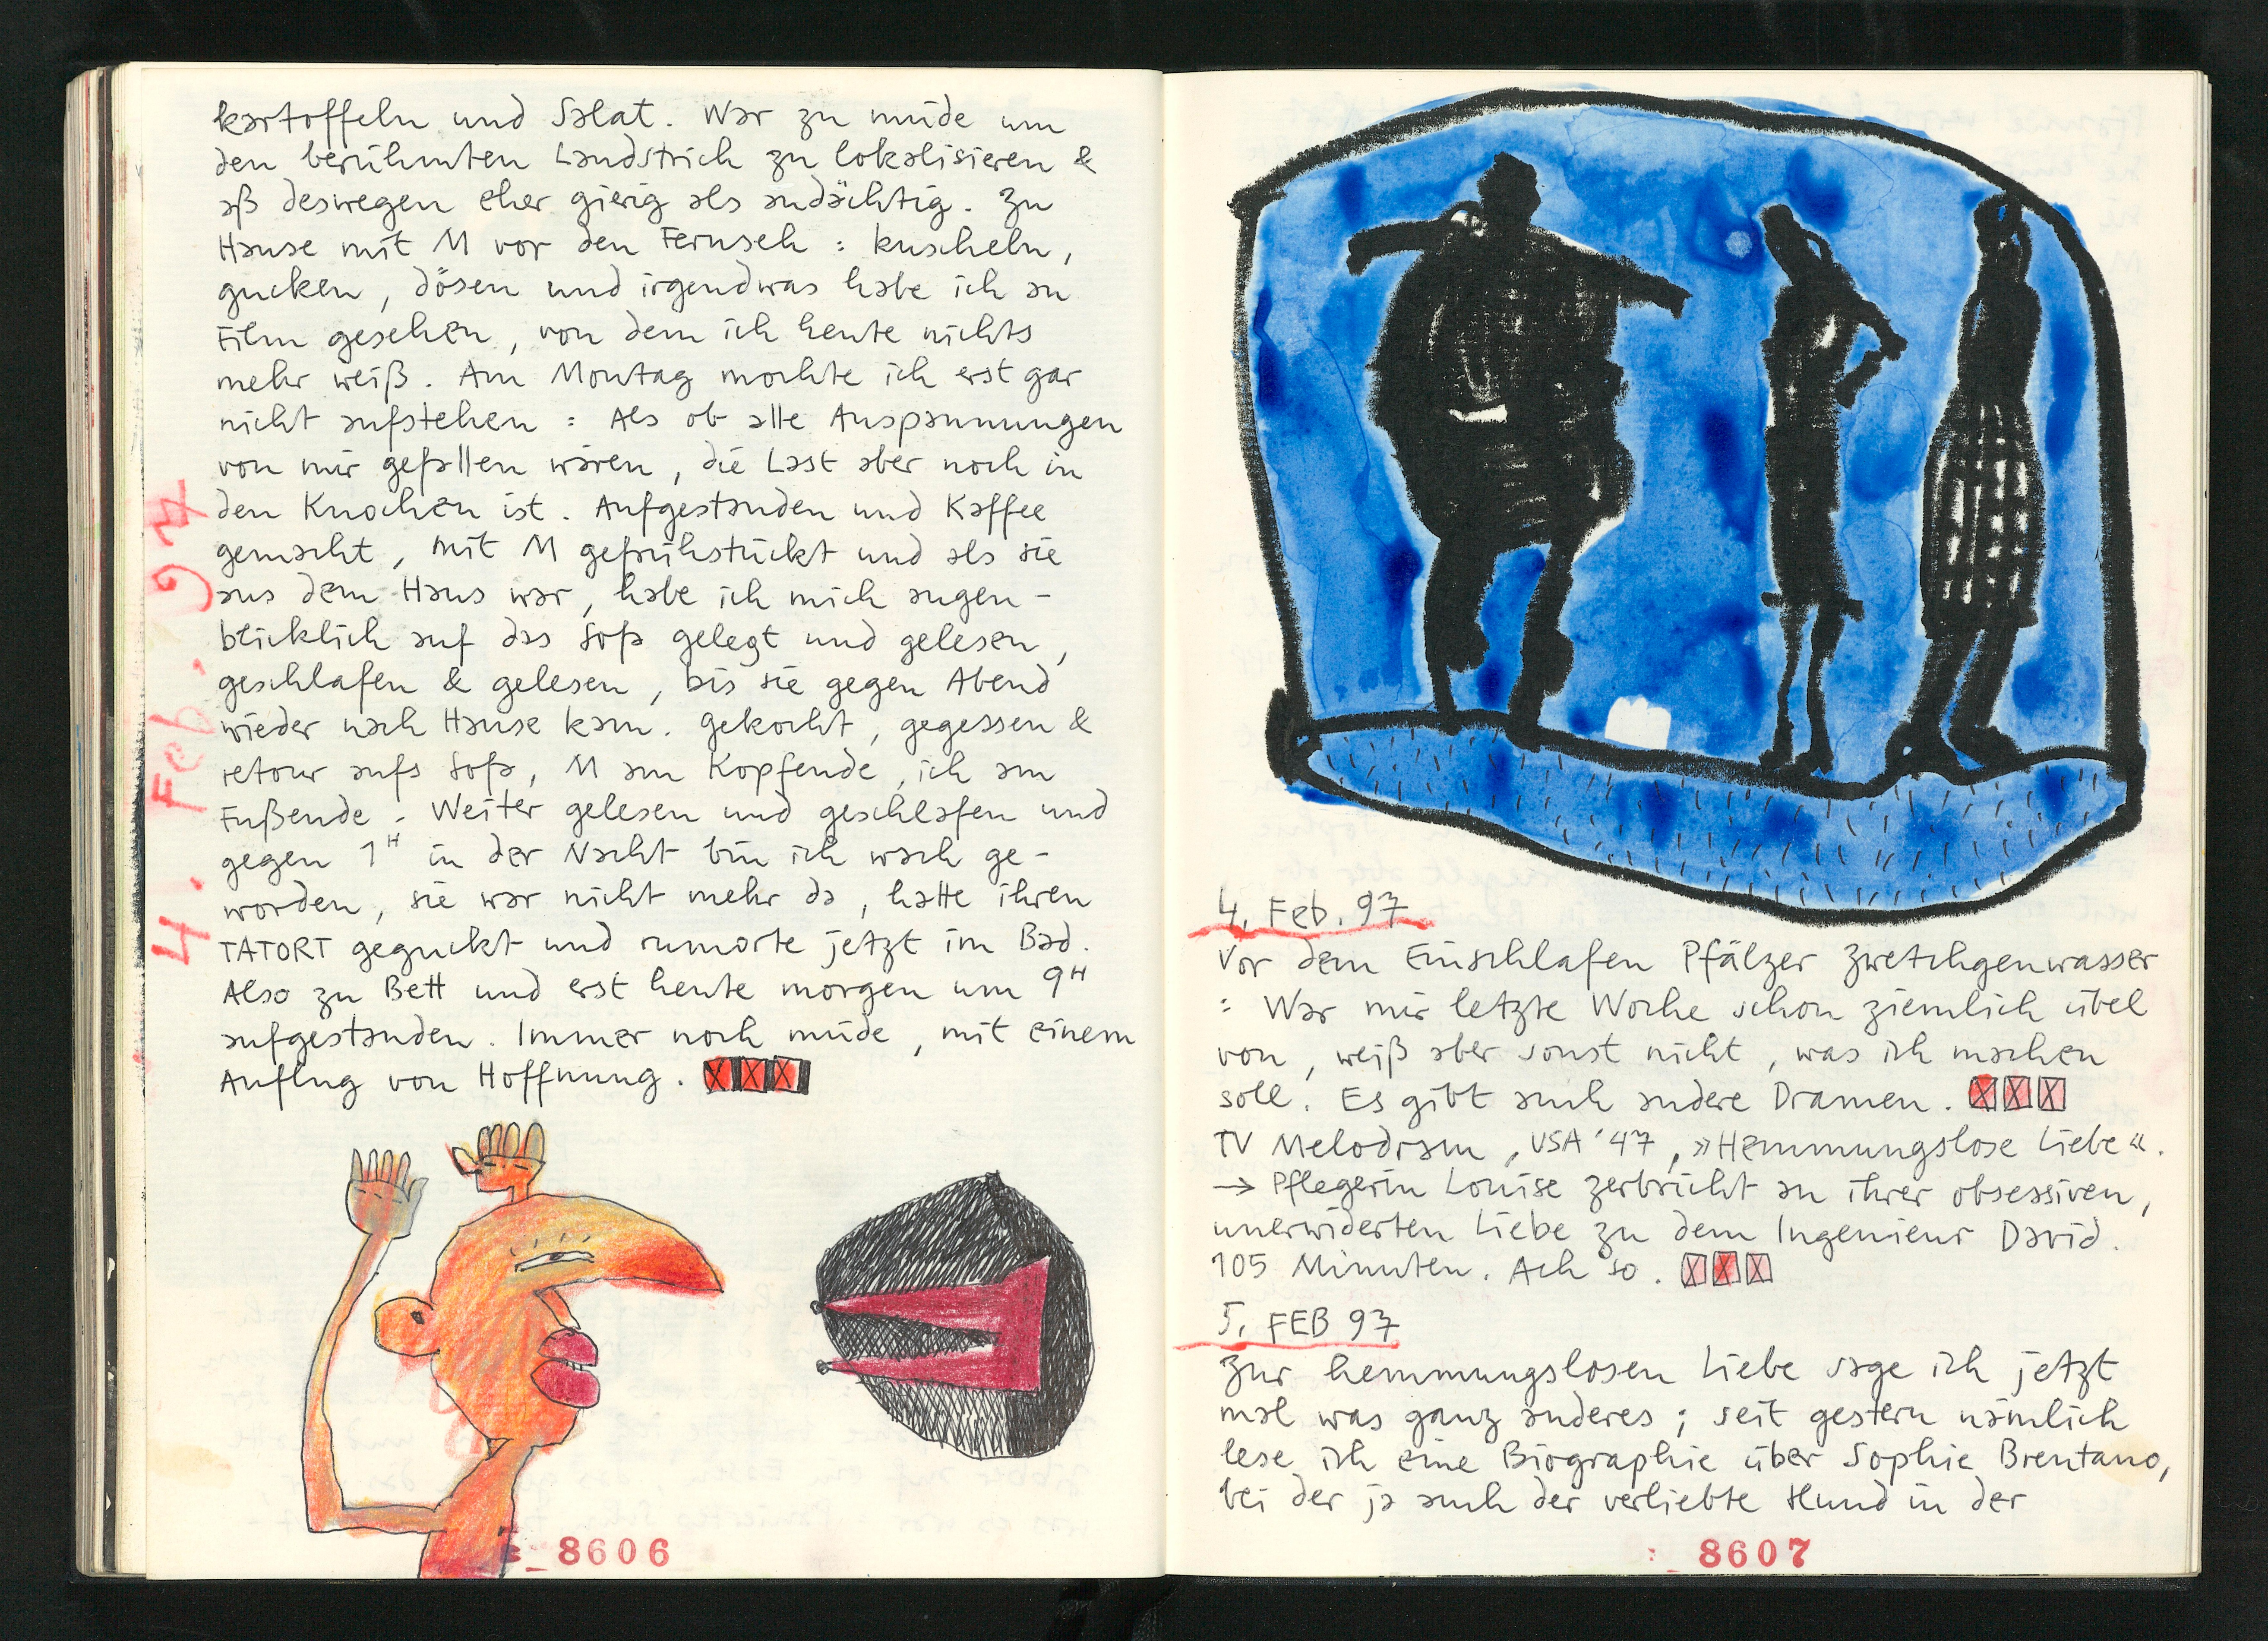 kartoffeln und Salat. War zu müde um
den berühmten Landstrich zu lokalisieren &
aß deswegen eher gierig als andächtig. Zu
Hause mit M vor den Fernseh : kuscheln,
gucken, dösen und irgendwas habe ich an
Film gesehen, von dem ich heute nichts
mehr weiß. Am Montag mochte ich erst gar
nicht aufstehen : Als ob alle Anspannungen
von mir gefallen wären, die Last aber noch in
den Knochen ist. Aufgestanden und Kaffee
gemacht, mit M gefrühstückt und als sie
aus dem Haus war, habe ich mich augen-
blicklich auf das Sofa gelegt und gelesen,
geschlafen & gelesen, bis sie gegen Abend
wieder nach Hause kam. Gekocht, gegessen &
retour aufs Sofa, M am Kopfende, ich am
Fußende. Weiter gelesen und geschlafen und
gegen 1H in der Nacht bin ich wach ge-
worden, sie war nicht mehr da, hatte ihren
TATORT geguckt und rumorte jetzt im Bad.
Also zu Bett und erst heute morgen um 9H
aufgestanden. Immer noch müde, mit einem
Anflug von Hoffnung. XXX
4. Feb. 97
8606
4. Feb. 97
Vor dem Einschlafen Pfälzer Zwetchgenwasser
: War mir letzte Woche schon ziemlich übel
von, weiß aber sonst nicht, was ich machen
soll. Es gibt auch andere Dramen. XXX
TV Melodram, USA '47, »Hemmungslose Liebe«.
→ Pflegerin Louise zerbricht an ihrer obsessiven,
unerwiderten Liebe zu dem Ingenieur David.
105 Minuten. Ach so. XXX
5. FEB 97
Zur hemmungslosen Liebe sage ich jetzt
mal was ganz anderes ; seit gestern nämlich
lese ich eine Biographie über Sophie Brentano,
bei der ja auch der verliebte Hund in der
8607